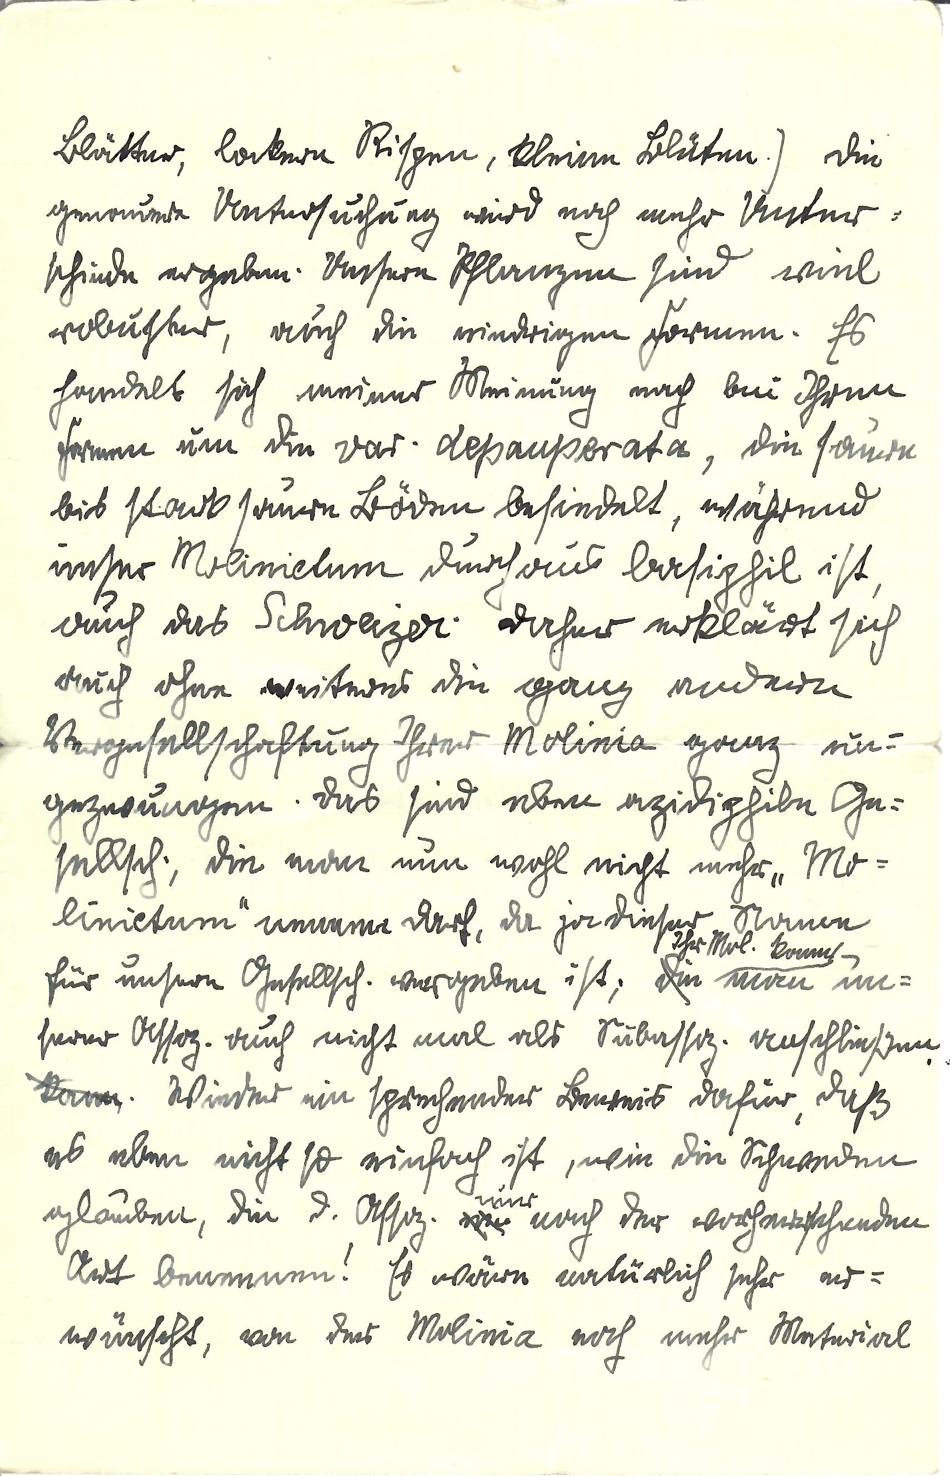 Blätter, lockere Rispen, kleine Blüten.) Die
genauere Untersuchung wird noch mehr Unter=
schiede ergeben. Unsere Pflanzen sind viel
robuster, auch die niedrigen Formen. Es
handelt sich meiner Meinung nach bei Ihren
Formen um die var. depauperata, die saure
bis stark saure Böden besiedelt, während
unser Molinietum durchaus basiphil ist,
auch das Schweizer. Daher erklärt sich
auch ohne weiteres die ganz andere
Vergesellschaftung Ihrer Molinia ganz un=
gezwungen. Das sind eben azidiphile Ge=
sellsch., die man nun wohl nicht mehr „Mo=
linietum" nennen darf, da ja dieser Name
Ihr Mol. kann
für unsere Gesellsch. vergeben ist; die man un=
serer Assoz. auch nicht mal als Subassoz. anschliessen.
kann. Wieder ein sprechender Beweis dafür, daß
es eben nicht so einfach ist, wie die Schweden
nur
glauben, die d. Assoz. nach der vorherrschenden
Art benennen! Es wäre natürlich sehr er=
wünscht, von der Molinia noch mehr Material